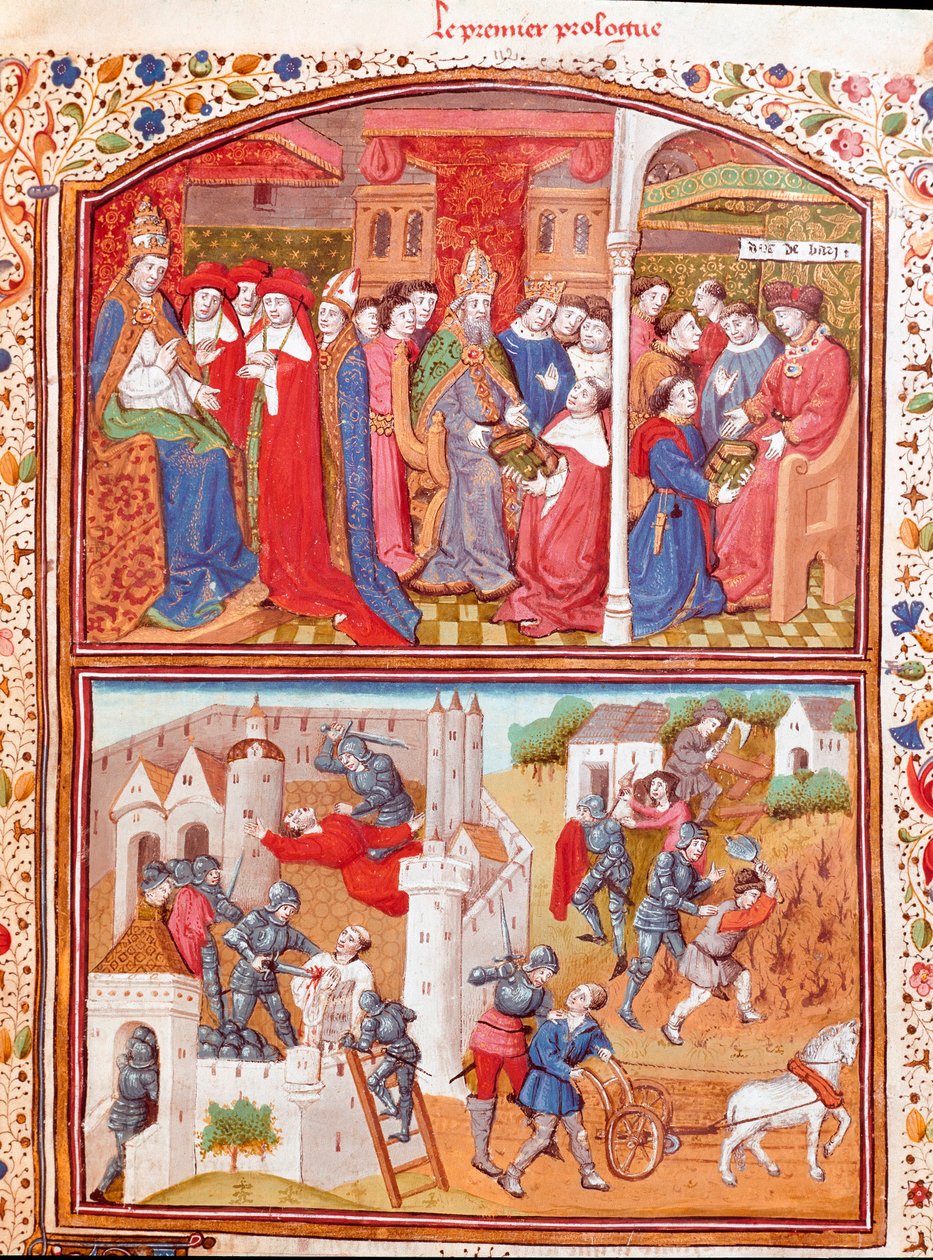 Le premier prologue
duc de bari